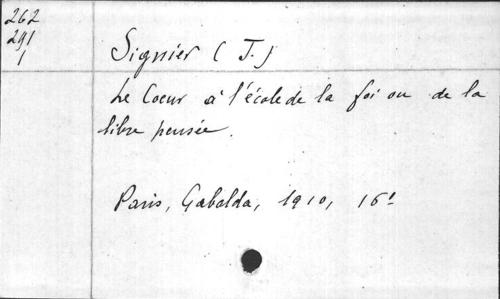 262
291
1
Signier (J.)
Le Coeur à l'école de la foi ou de la
libre pensée.
Paris, Gabalda, 1910, 16º